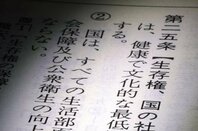 第二五条【生存権、国の社
は、健康で文化的な最低
する。
② 国は、すべての生活部
会保障及び公衆衛生の向上
ならない。